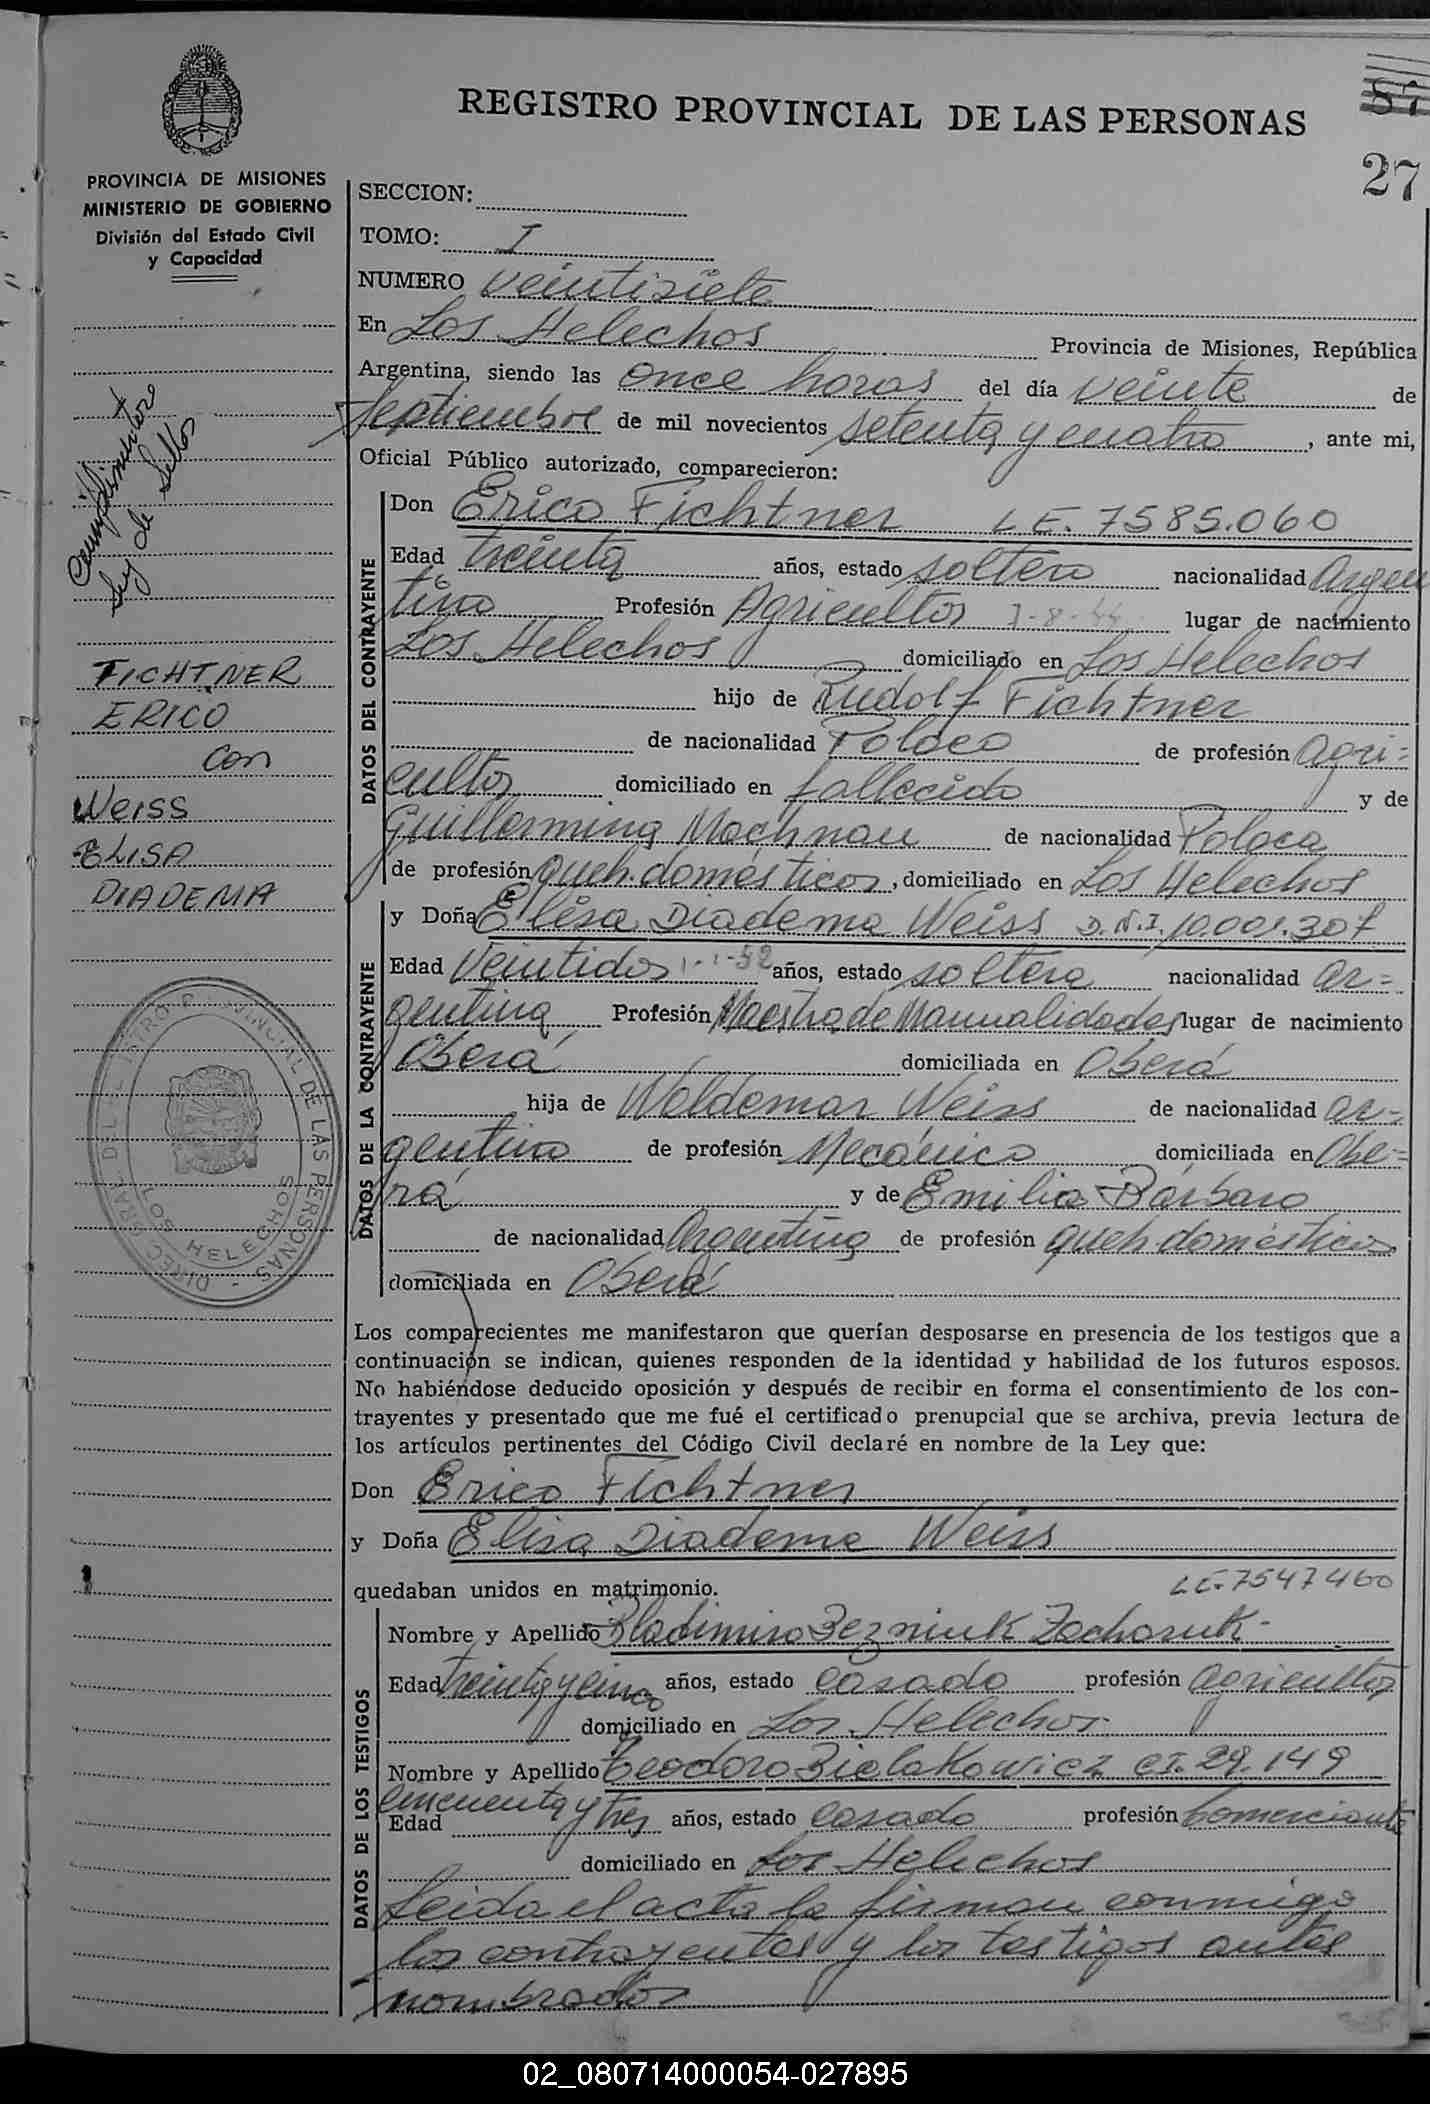 REGISTRO PROVINCIAL DE LAS PERSONAS
87
27
PROVINCIA DE MISIONES
MINISTERIO DE GOBIERNO
División del Estado Civil
y Capacidad
Cumplimentado
Ley de Sellos
FICHTNER
ERICO
con
WEISS
ELISA
DIADEMA
SECCION:
TOMO: I
NUMERO veintisiete
En Los Helechos Provincia de Misiones, República
Argentina, siendo las once horas del día veinte de
septiembre de mil novecientos setenta y cuatro, ante mi,
Oficial Público autorizado, comparecieron:
DATOS DEL CONTRAYENTE
Don Erico Fichtner L.E. 7585.060
Edad treinta años, estado soltero nacionalidad Argen
tino Profesión Agricultor 7-8-44 lugar de nacimiento
Los Helechos domiciliado en Los Helechos
hijo de Rudolf Fichtner
de nacionalidad Polaco de profesión agri=
cultor domiciliado en fallecido y de
Guillermina Machnau de nacionalidad Polaca
de profesión queh. domésticos, domiciliado en Los Helechos
DATOS DE LA CONTRAYENTE
y Doña Elisa Diadema Weiss D.N.I. 10.001.307
Edad Veintidos 1-1-52 años, estado soltera nacionalidad ar=
gentina Profesión Maestra de Manualidades lugar de nacimiento
Oberá domiciliada en Oberá
hija de Woldemar Weiss de nacionalidad ar=
gentino de profesión Mecánico domiciliada en Obe=
rá y de Emilia Bárbaro
de nacionalidad Argentina de profesión queh domésticos
domiciliada en Oberá
Los comparecientes me manifestaron que querían desposarse en presencia de los testigos que a
continuación se indican, quienes responden de la identidad y habilidad de los futuros esposos.
No habiéndose deducido oposición y después de recibir en forma el consentimiento de los con-
trayentes y presentado que me fué el certificado prenupcial que se archiva, previa lectura de
los artículos pertinentes del Código Civil declaré en nombre de la Ley que:
Don Erico Fichtner
y Doña Elisa Diadema Weiss
quedaban unidos en matrimonio. L.E. 7547460
DATOS DE LOS TESTIGOS
Nombre y Apellido Bladimiro Bezniuk Zacharuk
Edad treinta y cinco años, estado casado profesión agricultor
domiciliado en Los Helechos
Nombre y Apellido Teodoro Bielakowicz CI. 29.149
Edad cincuenta y tres años, estado casado profesión comerciante
domiciliado en Los Helechos
Leida el acta la firman conmigo
los contrayentes y los testigos antes
nombrados
DIREC. GRAL. DEL REGISTRO PROVINCIAL DE LAS PERSONAS
LOS HELECHOS
02_080714000054-027895